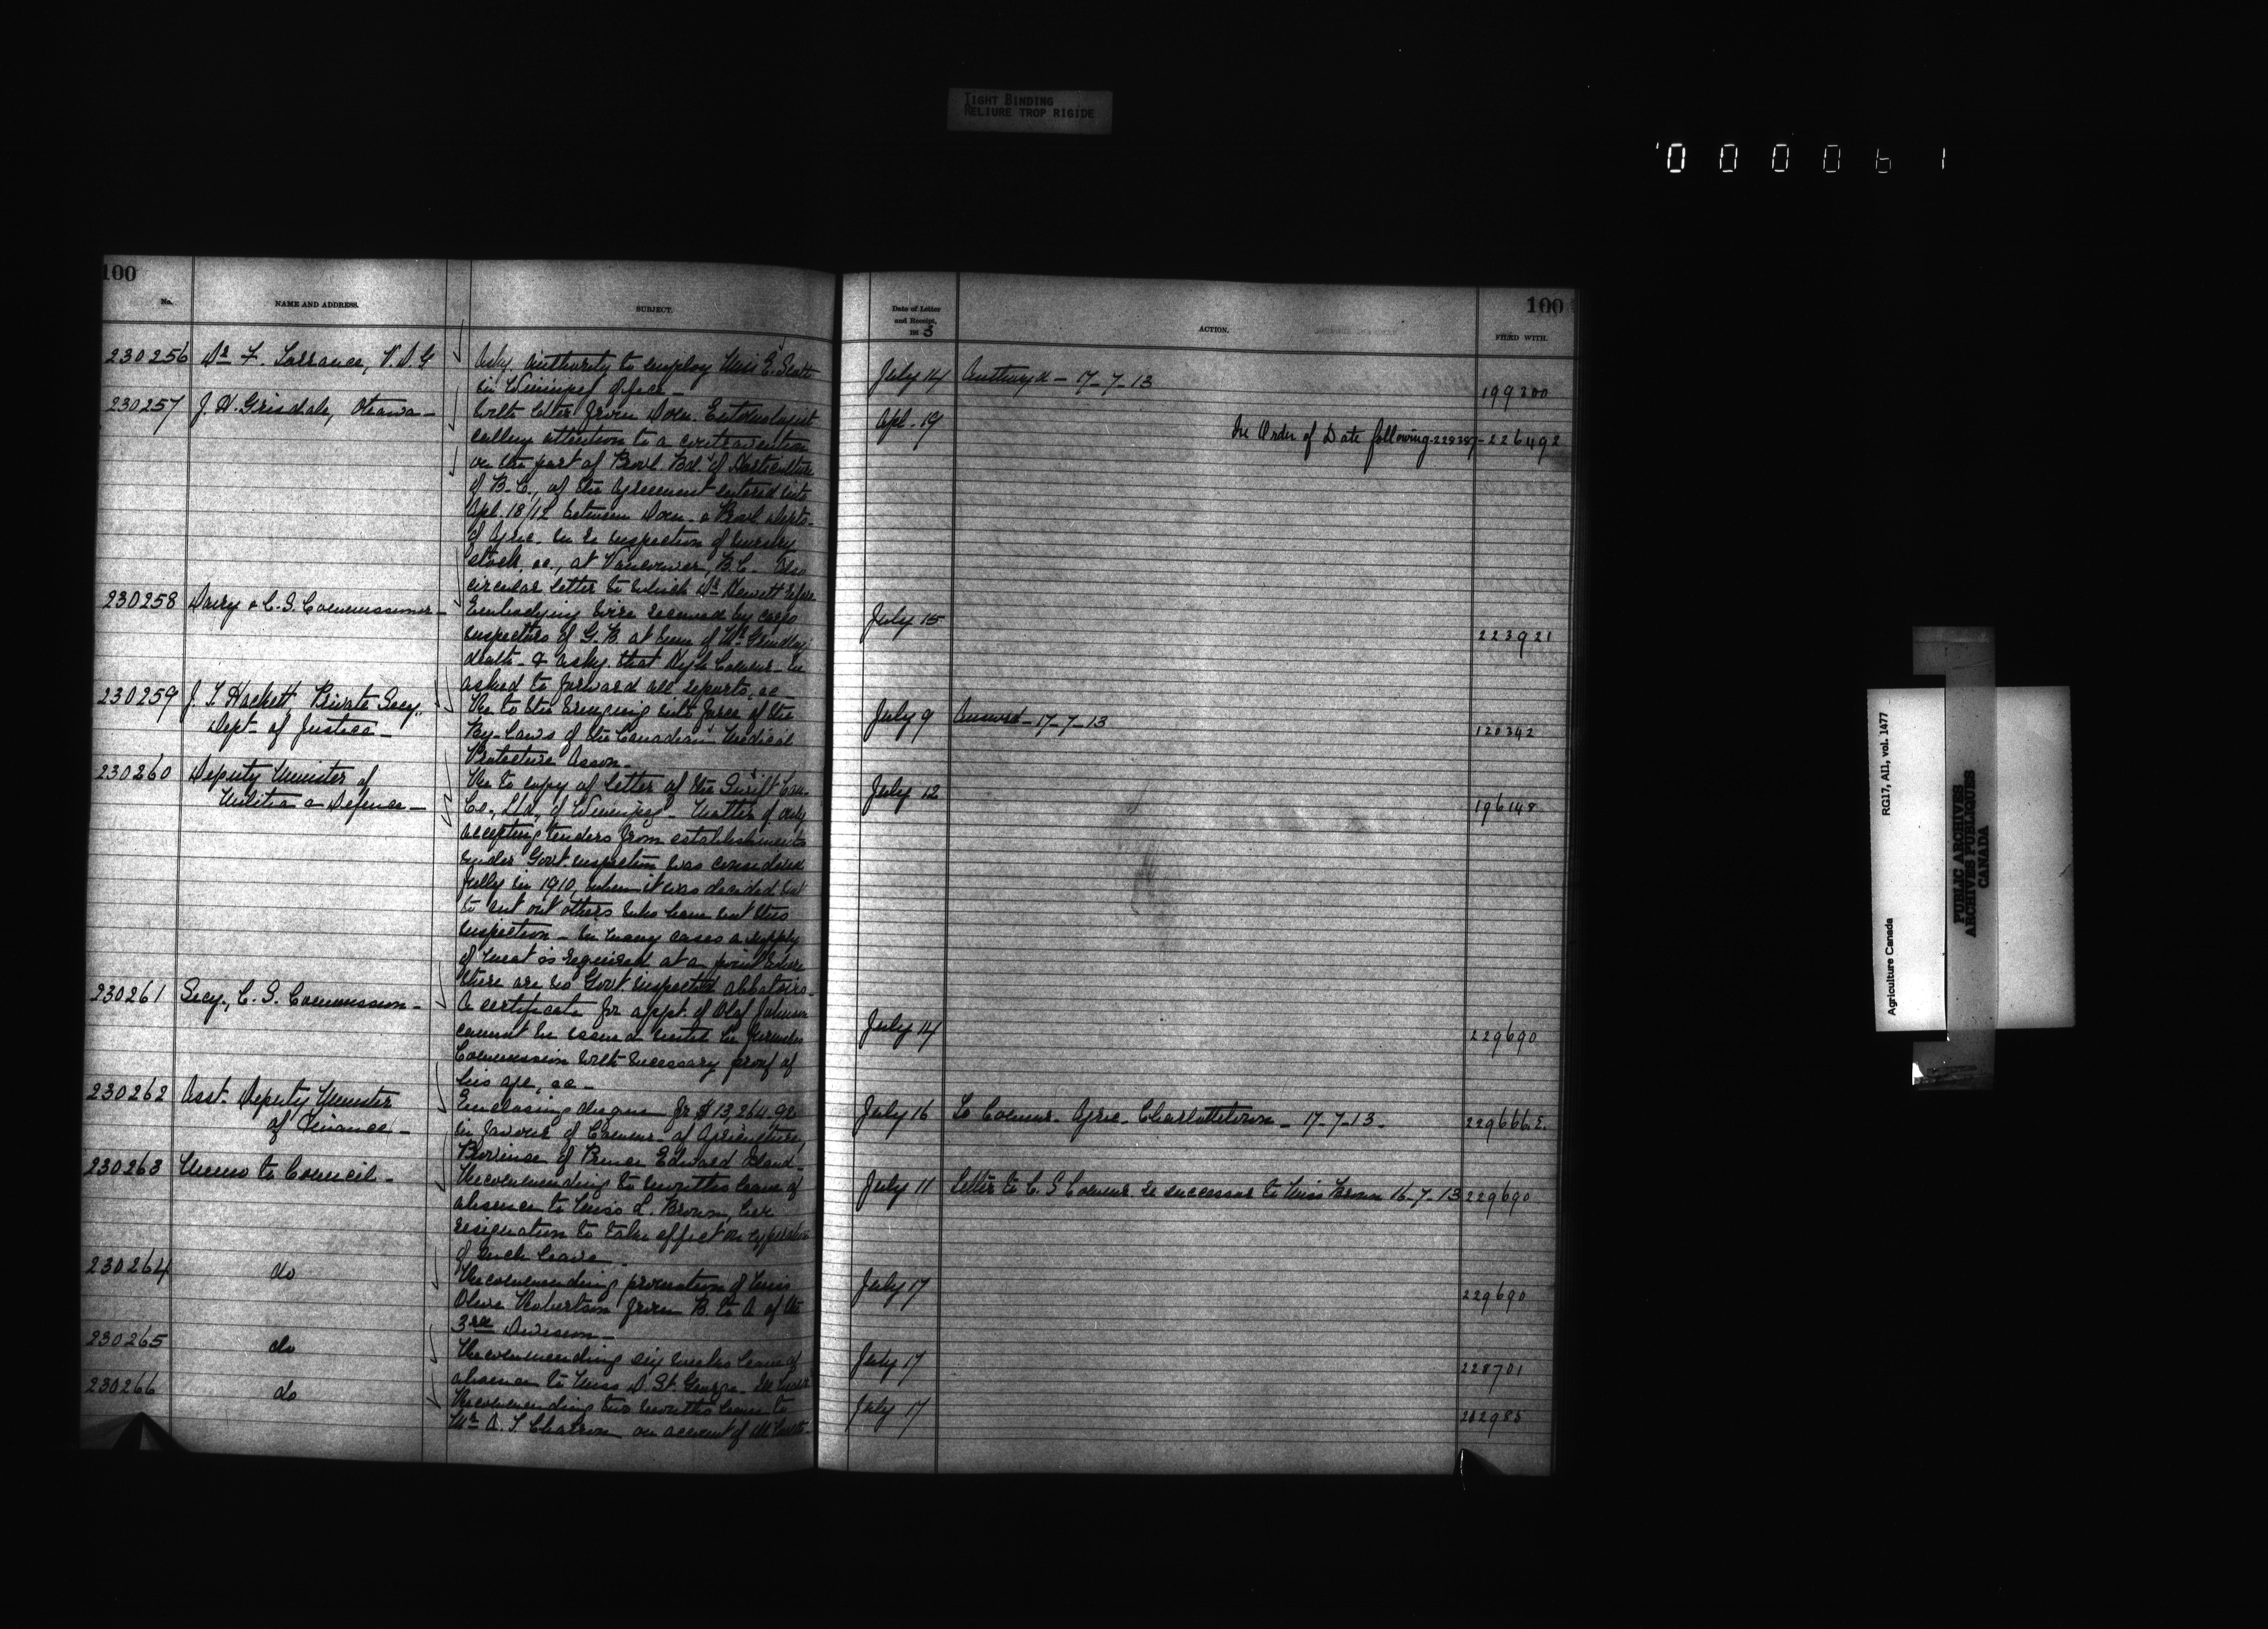 TIGHT BINDING
RELIURE TROP RIGIDE
000061
100
No.
NAME AND ADDRESS.
SUBJECT.
230256 Dr. F. Torrance, V.D.G
Askg. authority to employ Miss E. Scott
in Winnipeg office -
230257 J. H. Grisdale, Ottawa -
With letter from Dom. Entomologist
calling attention to a contravention
on the part of Provl. Bd. of Horticulture
of B.C., of the Agreement entered into
Apl. 18/12 between Dom. & Provl. Depts.
of Agric. in re inspection of nursery
stock, &c., at Vancouver, B.C. Also
circular letter to which Dr. Hewitt refers
230258 Dairy & C. S. Commissioner -
Embodying wire received by cargo
inspectors of G. B. at time of Mr. Grindley
death - & askg. that High Commr. be
asked to forward all reports, &c -
230259 J. T. Hackett Private Secy.,
Dept. of Justice -
Re to the bringing into force of the
By-Laws of the Canadian Medical
Protective Asson. -
230260 Deputy Minister of
Militia & Defence -
Re to copy of letter of the Swift Can.
Co., Ltd., of Winnipeg - Matter of only
accepting tenders from establishments
under Govt. inspection was considered
fully in 1910, when it was decided not
to cut out others who have not this
inspection - In many cases a supply
of meat is required at a point where
there are no Govt inspected abbatoirs -
230261 Secy., C. S. Commission -
A certificate for appt. of Olaf Johnson
cannot be issued until he furnishes
Commission with necessary proof of
his age, &c -
230262 Asst. Deputy Minister
of Finance -
Enclosing cheque for $13,264.92
in favour of Commr. of Agriculture,
Province of Prince Edward Island -
230263 Memo to Council -
Recommending months leave of
absence to Miss L. Brown, her
resignation to take effect on expiration
of such leave -
230264 do
Recommending promotion of Miss
Olive Robertson from B to A of the
3rd Division -
230265 do
Recommending six weeks leave of
absence to Miss D. St. George -
230266 do
Recommending two months leave to
Mr. A. T. Charron on account of ill
100
Date of Letter
and Receipt,
191 3
ACTION.
FILED WITH.
July 14 Authory'd - 17-7-13 199300
Apl. 19 In Order of Date following 229387 - 226492
July 15 223921
July 9 Answd - 17-7-13 120342
July 12 196148
July 14 229690
July 16 To Commr. Agric. Charlottetown - 17-7-13 - 229666.2.
July 11 Letter to C. S Commr. re successor to Miss Brown 16-7-13 229690
July 17 229690
July 17 228701
July 17 212985
Agriculture Canada
RG17, AII, vol. 1477
PUBLIC ARCHIVES
ARCHIVES PUBLIQUES
CANADA